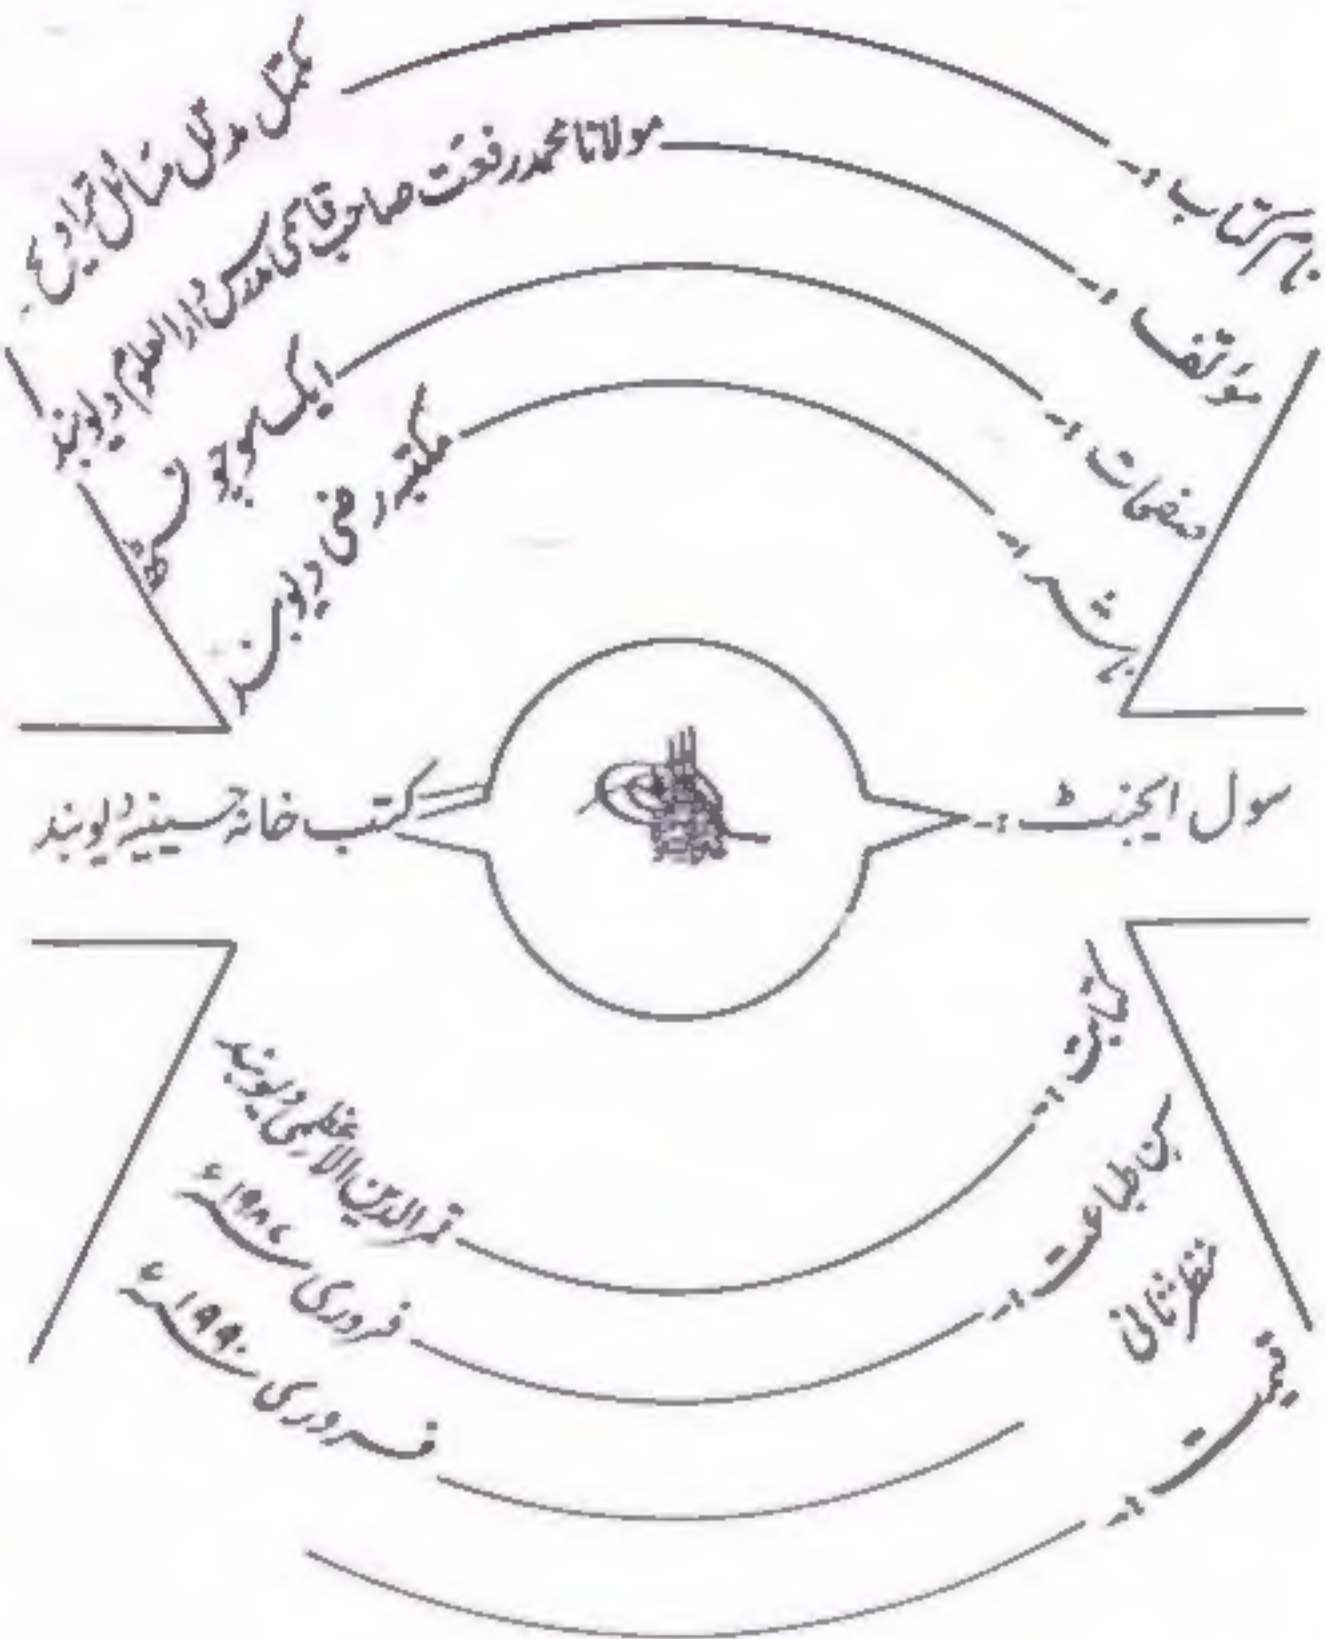 نام کتاب :- مکمل مدلل مسائل تراویح
مؤلف :- مولانا محمد رفعت صاحب قاسمی مدرس دارالعلوم دیوبند
صفحات :- ایک سو چو
ناشر :- مکتبہ رضی دیوبند
سول ایجنٹ :- کتب خانہ حسینیہ دیوبند
کتابت :- قمرالدین الاعظمی دیوبند
سن طباعت :- فروری ۱۹۸۷ء
نظر ثانی فروری ۱۹۹۰ء
قیمت :-